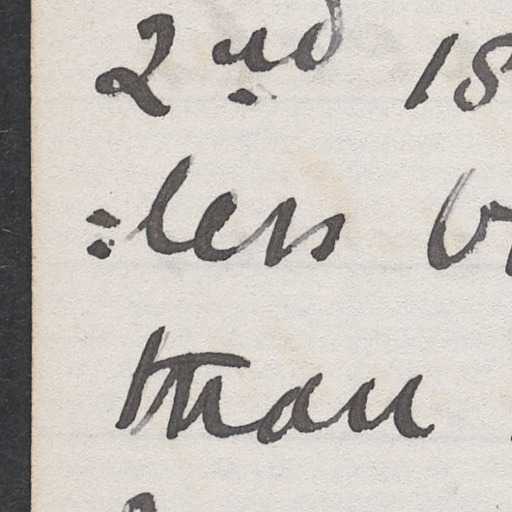 2nd 18
=less
than